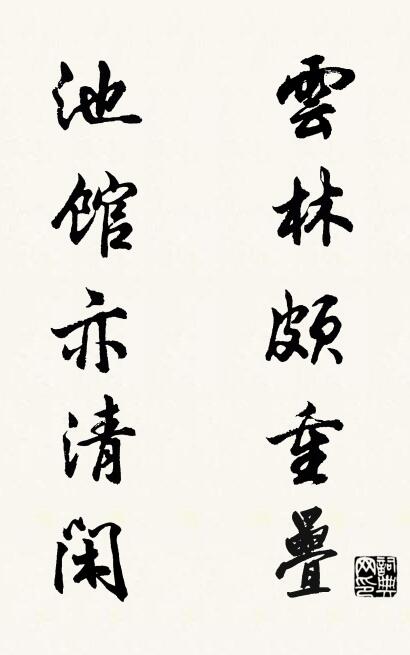 雲林頗重疊
池館亦清閑
詞典網印